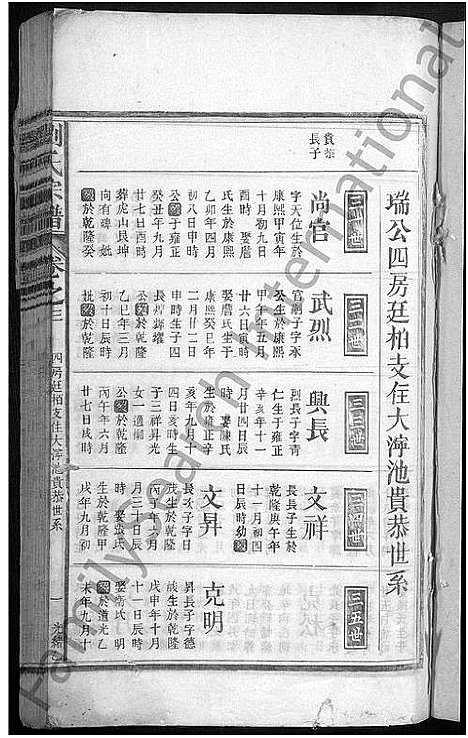 瑞公四房廷柏支住大渟池貴恭世系
貴恭
長子
三一世
尚宮
字天位生於
康熙甲寅年
十月初九日
酉時 娶詹
氏生於康熙
乙卯年四月
初八日申時
公歿于雍正
癸丑年九月
廿七日酉時
葬虎山艮坤
向有碑 妣
歿於乾隆癸
三二世
武烈
官嗣子字承
公生於康熙
甲午年五月
廿六日寅時
娶詹氏生于
康熙癸巳年
二月廿二日
申時生子四
長煌燦耀
公歿於乾隆
乙巳年三月
批歿於乾隆
三三世
興長
烈長子字青
仁生于雍正
辛亥年十一
月廿四日辰
時 娶陳氏
生於雍正辛
亥年九月十
四日亥時生
子三祥昇光
女一適
公歿於乾隆
丙午年六月
廿七日戌時
三四世
文祥
長長子生於
乾隆庚午年
十一月初四
日辰時幼歿
文昇
長次子字日
茂生於乾隆
丙子年六月
月三十日辰
時 娶張氏
生於乾隆甲
戌年九月初
三五世
克明
昇長子字德
峻生於乾隆
戊申年十月
十一日辰時
娶衛氏 明
歿於道光乙
未年九月十
劉氏宗譜
卷之三
四房廷柏支住大渟池貴恭世系
一
Family Search International